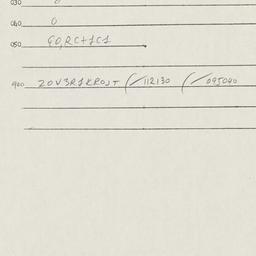 030 0
040 0
050 GO,RC+1C1
900 ZOV3R1KROJT (/112130 (/095040